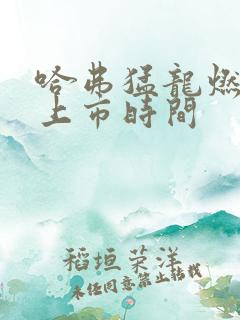 哈弗猛龍燃
上市時間
稻垣荣洋
未经同意禁止转载